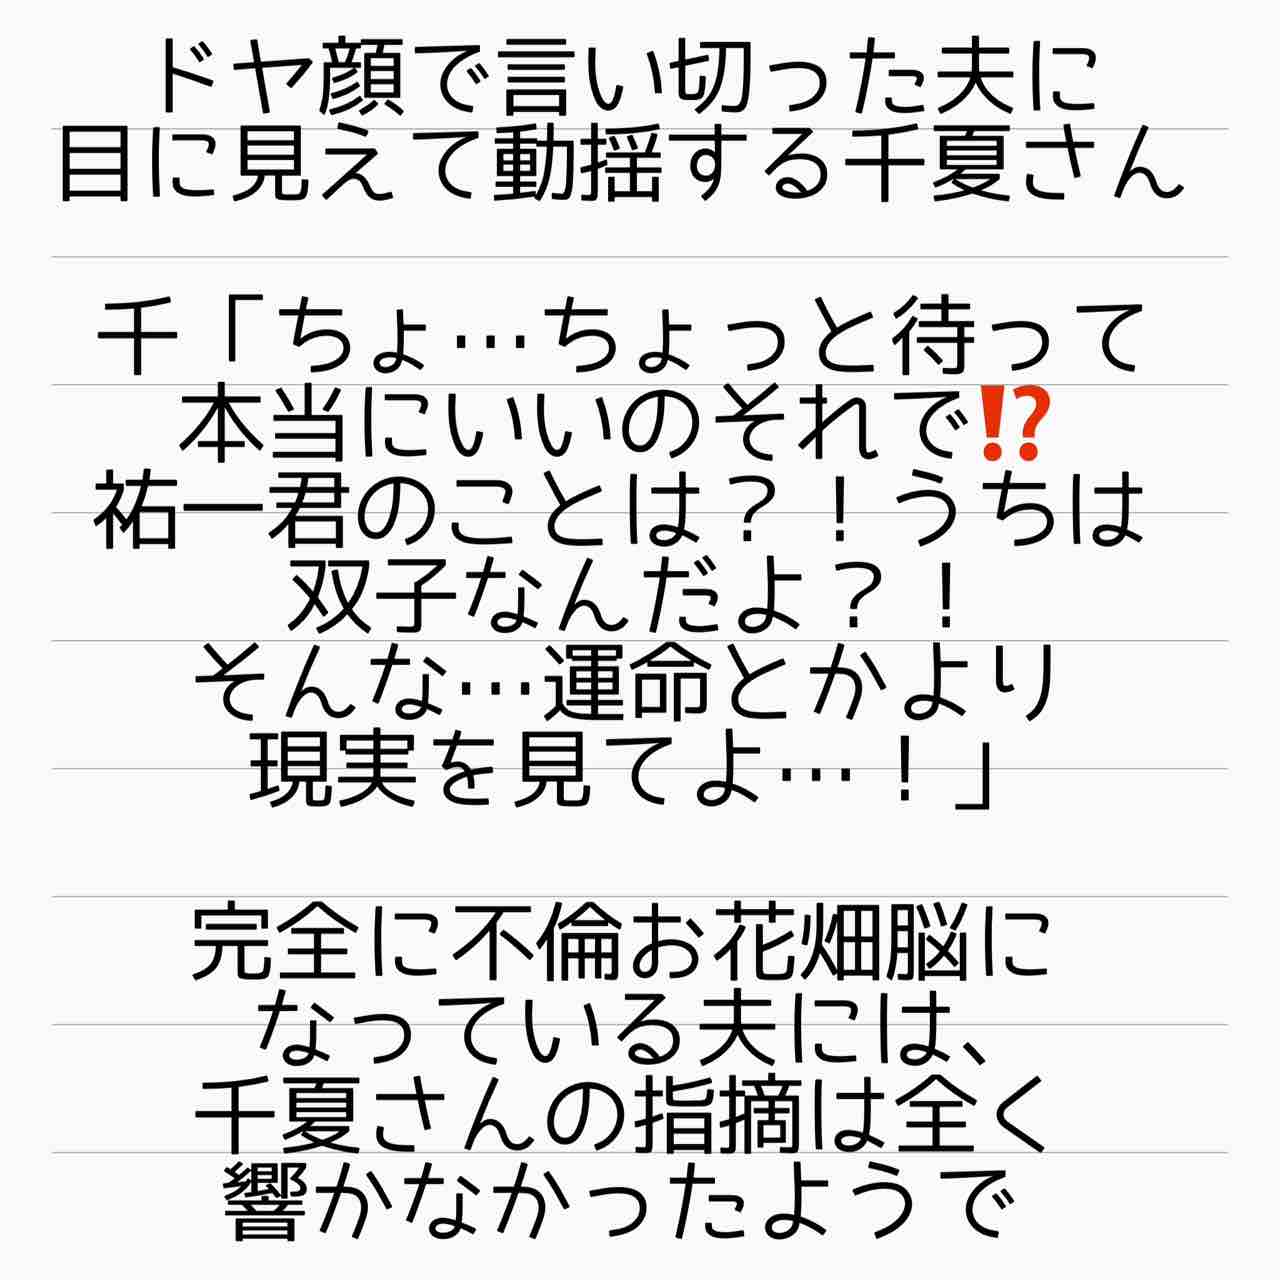 ドヤ顔で言い切った夫に
目に見えて動揺する千夏さん
千「ちょ…ちょっと待って
本当にいいのそれで⁉️
祐一君のことは？！うちは
双子なんだよ？！
そんな…運命とかより
現実を見てよ…！」
完全に不倫お花畑脳に
なっている夫には、
千夏さんの指摘は全く
響かなかったようで